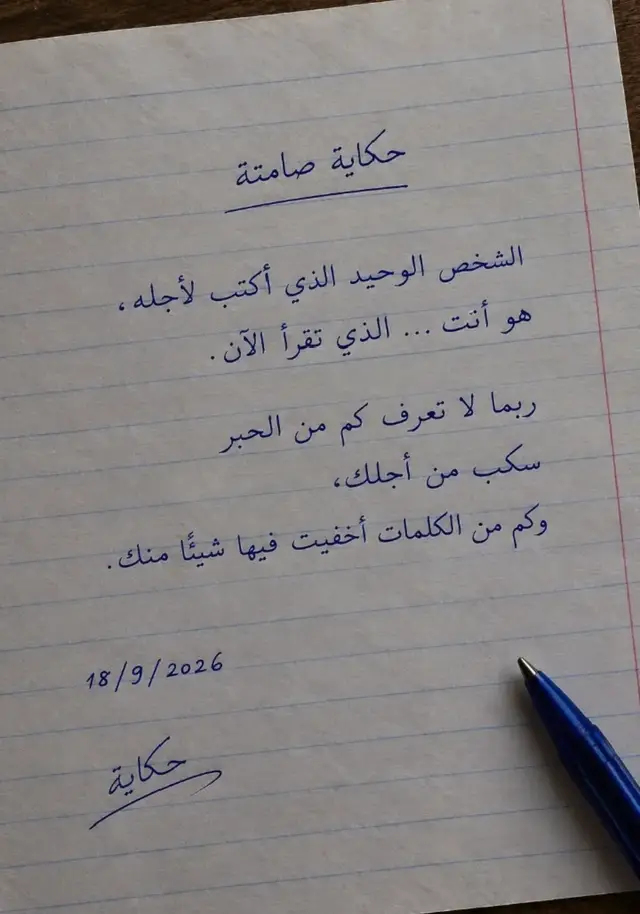 حكاية صامتة
الشخص الوحيد الذي أكتب لأجله،
هو أنت ... الذي تقرأ الآن.
ربما لا تعرف كم من الحبر
سكب من أجلك،
وكم من الكلمات أخفيت فيها شيئًا منك.
18/9/2026
حكاية